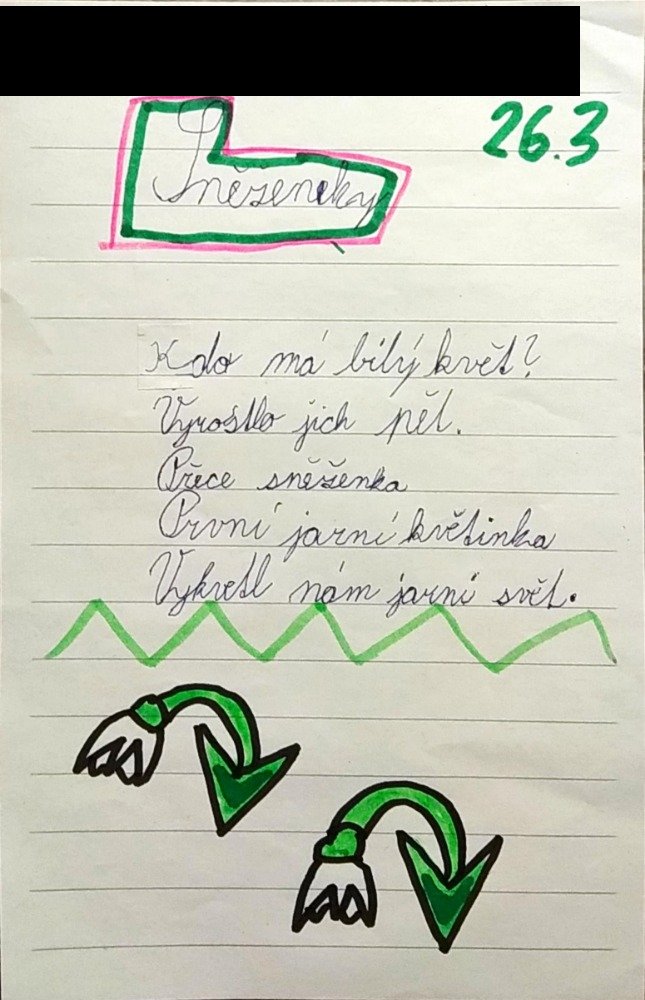 26.3
Sněženky
Kdo má bílý květ?
Vyrostlo jich pět.
Přece sněženka
První jarní květinka
Vykvetl nám jarní svět.